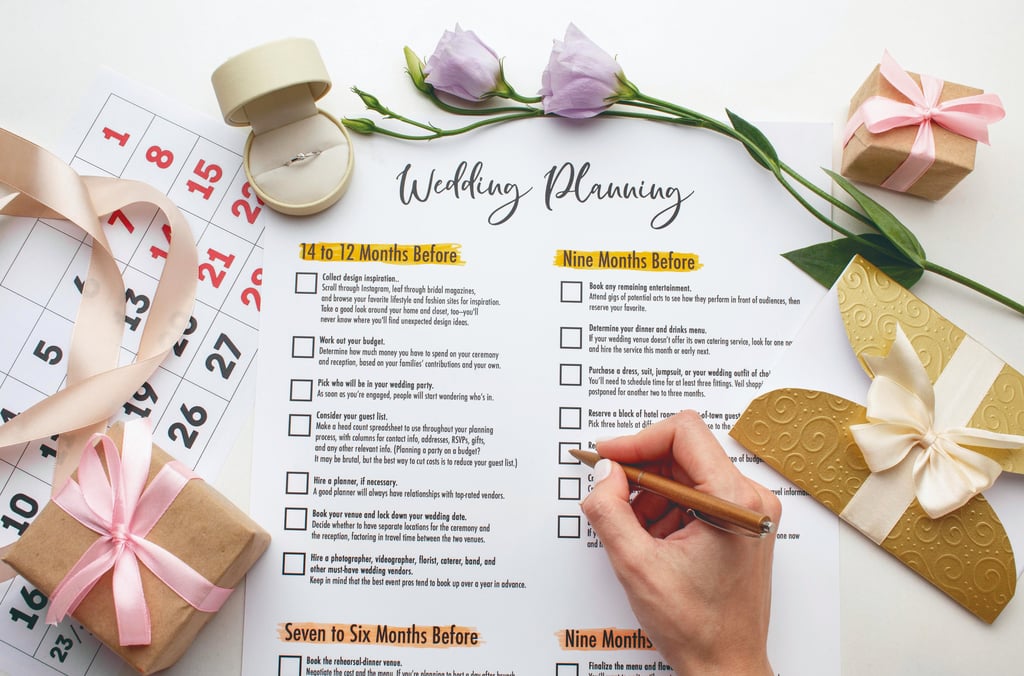 Wedding Planning
14 to 12 Months Before
Collect design inspiration..
Scroll through Instagram, leaf through bridal magazines,
and browse your favorite lifestyle and fashion sites for inspiration.
Take a good look around your home and closet, too—you'll
never know where you'll find unexpected design ideas.
Work out your budget.
Determine how much money you have to spend on your ceremony
and reception, based on your families' contributions and your own.
Pick who will be in your wedding party.
As soon as you're engaged, people will start wondering who's in.
Consider your guest list.
Make a head count spreadsheet to use throughout your planning
process, with columns for contact info, addresses, RSVPs, gifts,
and any other relevant info. (Planning a party on a budget?
It may be brutal, but the best way to cut costs is to reduce your guest list.)
Hire a planner, if necessary.
A good planner will always have relationships with top-rated vendors.
Book your venue and lock down your wedding date.
Decide whether to have separate locations for the ceremony and
the reception, factoring in travel time between the two venues.
Hire a photographer, videographer, florist, caterer, band, and
other must-have wedding vendors.
Keep in mind that the best event pros tend to book up over a year in advance.
Seven to Six Months Before
Book the rehearsal-dinner venue.
Negotiate the cost and the menu. If you're planning to host a day-after brunch
Nine Months Before
Book any remaining entertainment.
Attend gigs of potential acts to see how they perform in front of audiences, then
reserve your favorite.
Determine your dinner and drinks menu.
If your wedding venue doesn't offer its own catering service, look for one
and hire the service this month or early next.
Purchase a dress, suit, jumpsuit, or your wedding outfit of
You'll need to schedule time for at least three fittings. Veil
postponed for another two to three months.
Reserve a block of hotel guests
Pick three hotels at to the
of budget
travel
Nine Months
Finalize the menu and
1
8
15
7
21
13
27
5
19
26
10
16
23